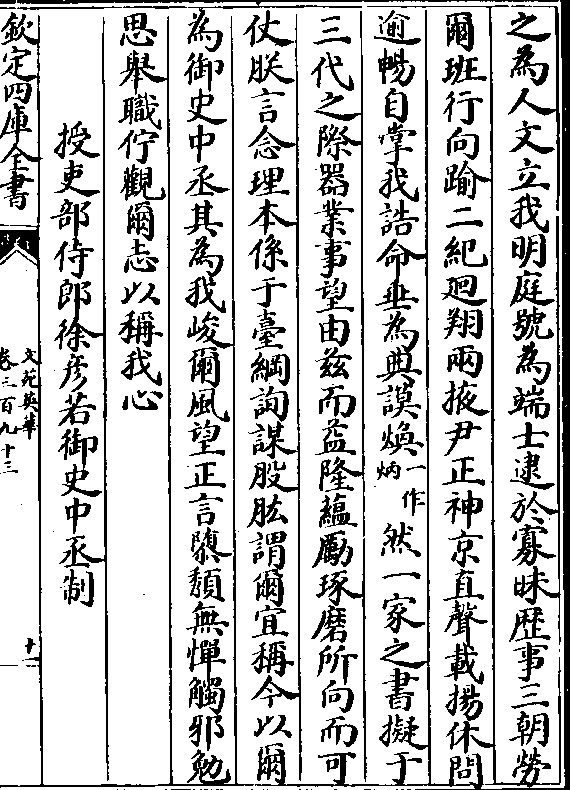 之為人文立我明庭號為端士逮於寡昧歴事三朝勞
爾班行向踰二紀廻翔兩掖尹正神京直聲載揚休問
逾暢自掌我誥命垂為典謨煥一作炳然一家之書擬于
三代之際器業事望由兹而益隆蘊勵琢磨所向而可
仗朕言念理本係于臺綱詢謀股肱謂爾宜稱今以爾
為御史中丞其為我峻爾風望正言隳頽無憚觸邪勉
思舉職佇觀爾志以稱我心
授吏部侍郎徐彦若御史中丞制
欽定四庫全書
文苑英華
卷三百九十三
十一